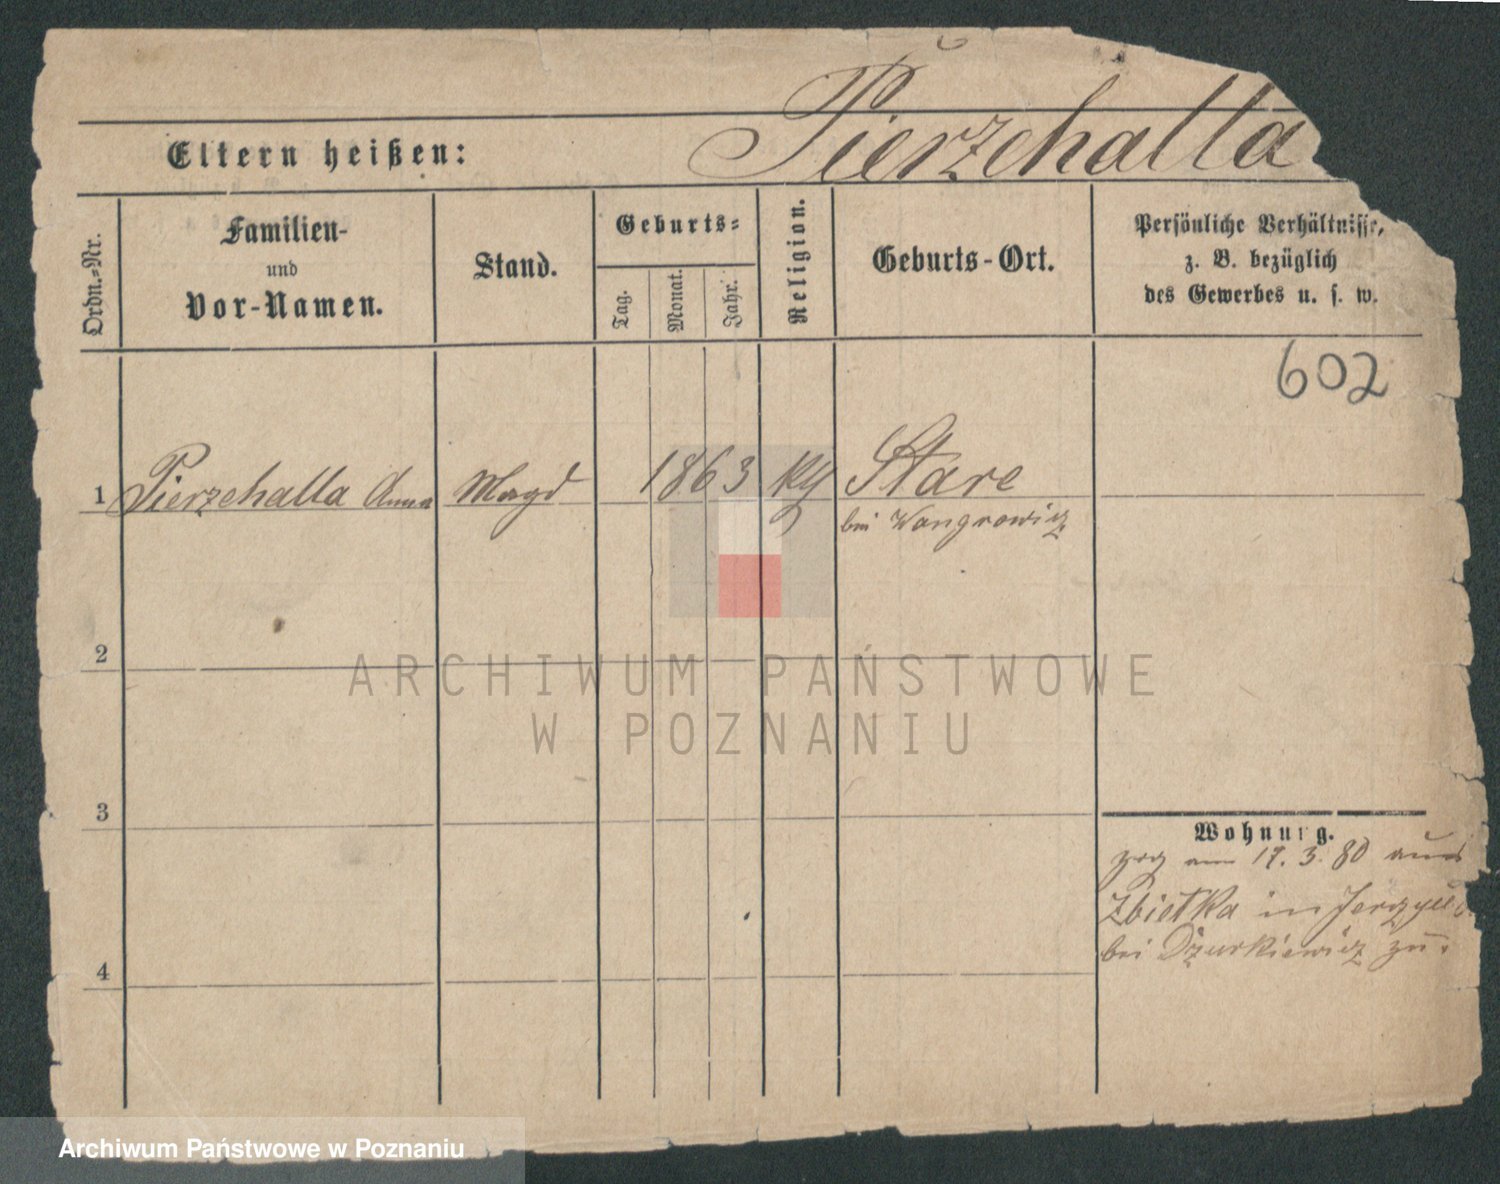 Pierzchalla
Eltern heißen:
Ordn.=Nr.
Familien-
und
Vor-Namen.
Stand.
Geburts=
Tag.
Monat.
Jahr.
Religion.
Geburts-Ort.
Persönliche Verhältnisse,
z. B. bezüglich
des Gewerbes u. s. w.
602
1 Pierzchalla Anna Magd 1863 Stare
bei Wongrowiez
2
3
4
Wohnung.
zog am 17. 3. 80 aus
Zbietka in
bei Dzurkiewicz zu.
ARCHIWUM PAŃSTWOWE
W POZNANIU
Archiwum Państwowe w Poznaniu